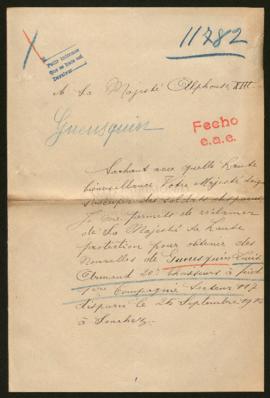 11782
A Sa Majesté Alphonse XIII
Gueusquin
Fecho
e.a.e.
Sachant avec quelle haute
bienveillance Votre Majesté daigne
s'occuper des soldats disparus
Je me permets de réclamer
de Sa Majesté Sa haute
protection pour obtenir des
nouvelles de Gueusquin Louis
Armand 20e chasseurs à pied
1ère Compagnie Secteur 117
disparu le 26 Septembre
à Souchez